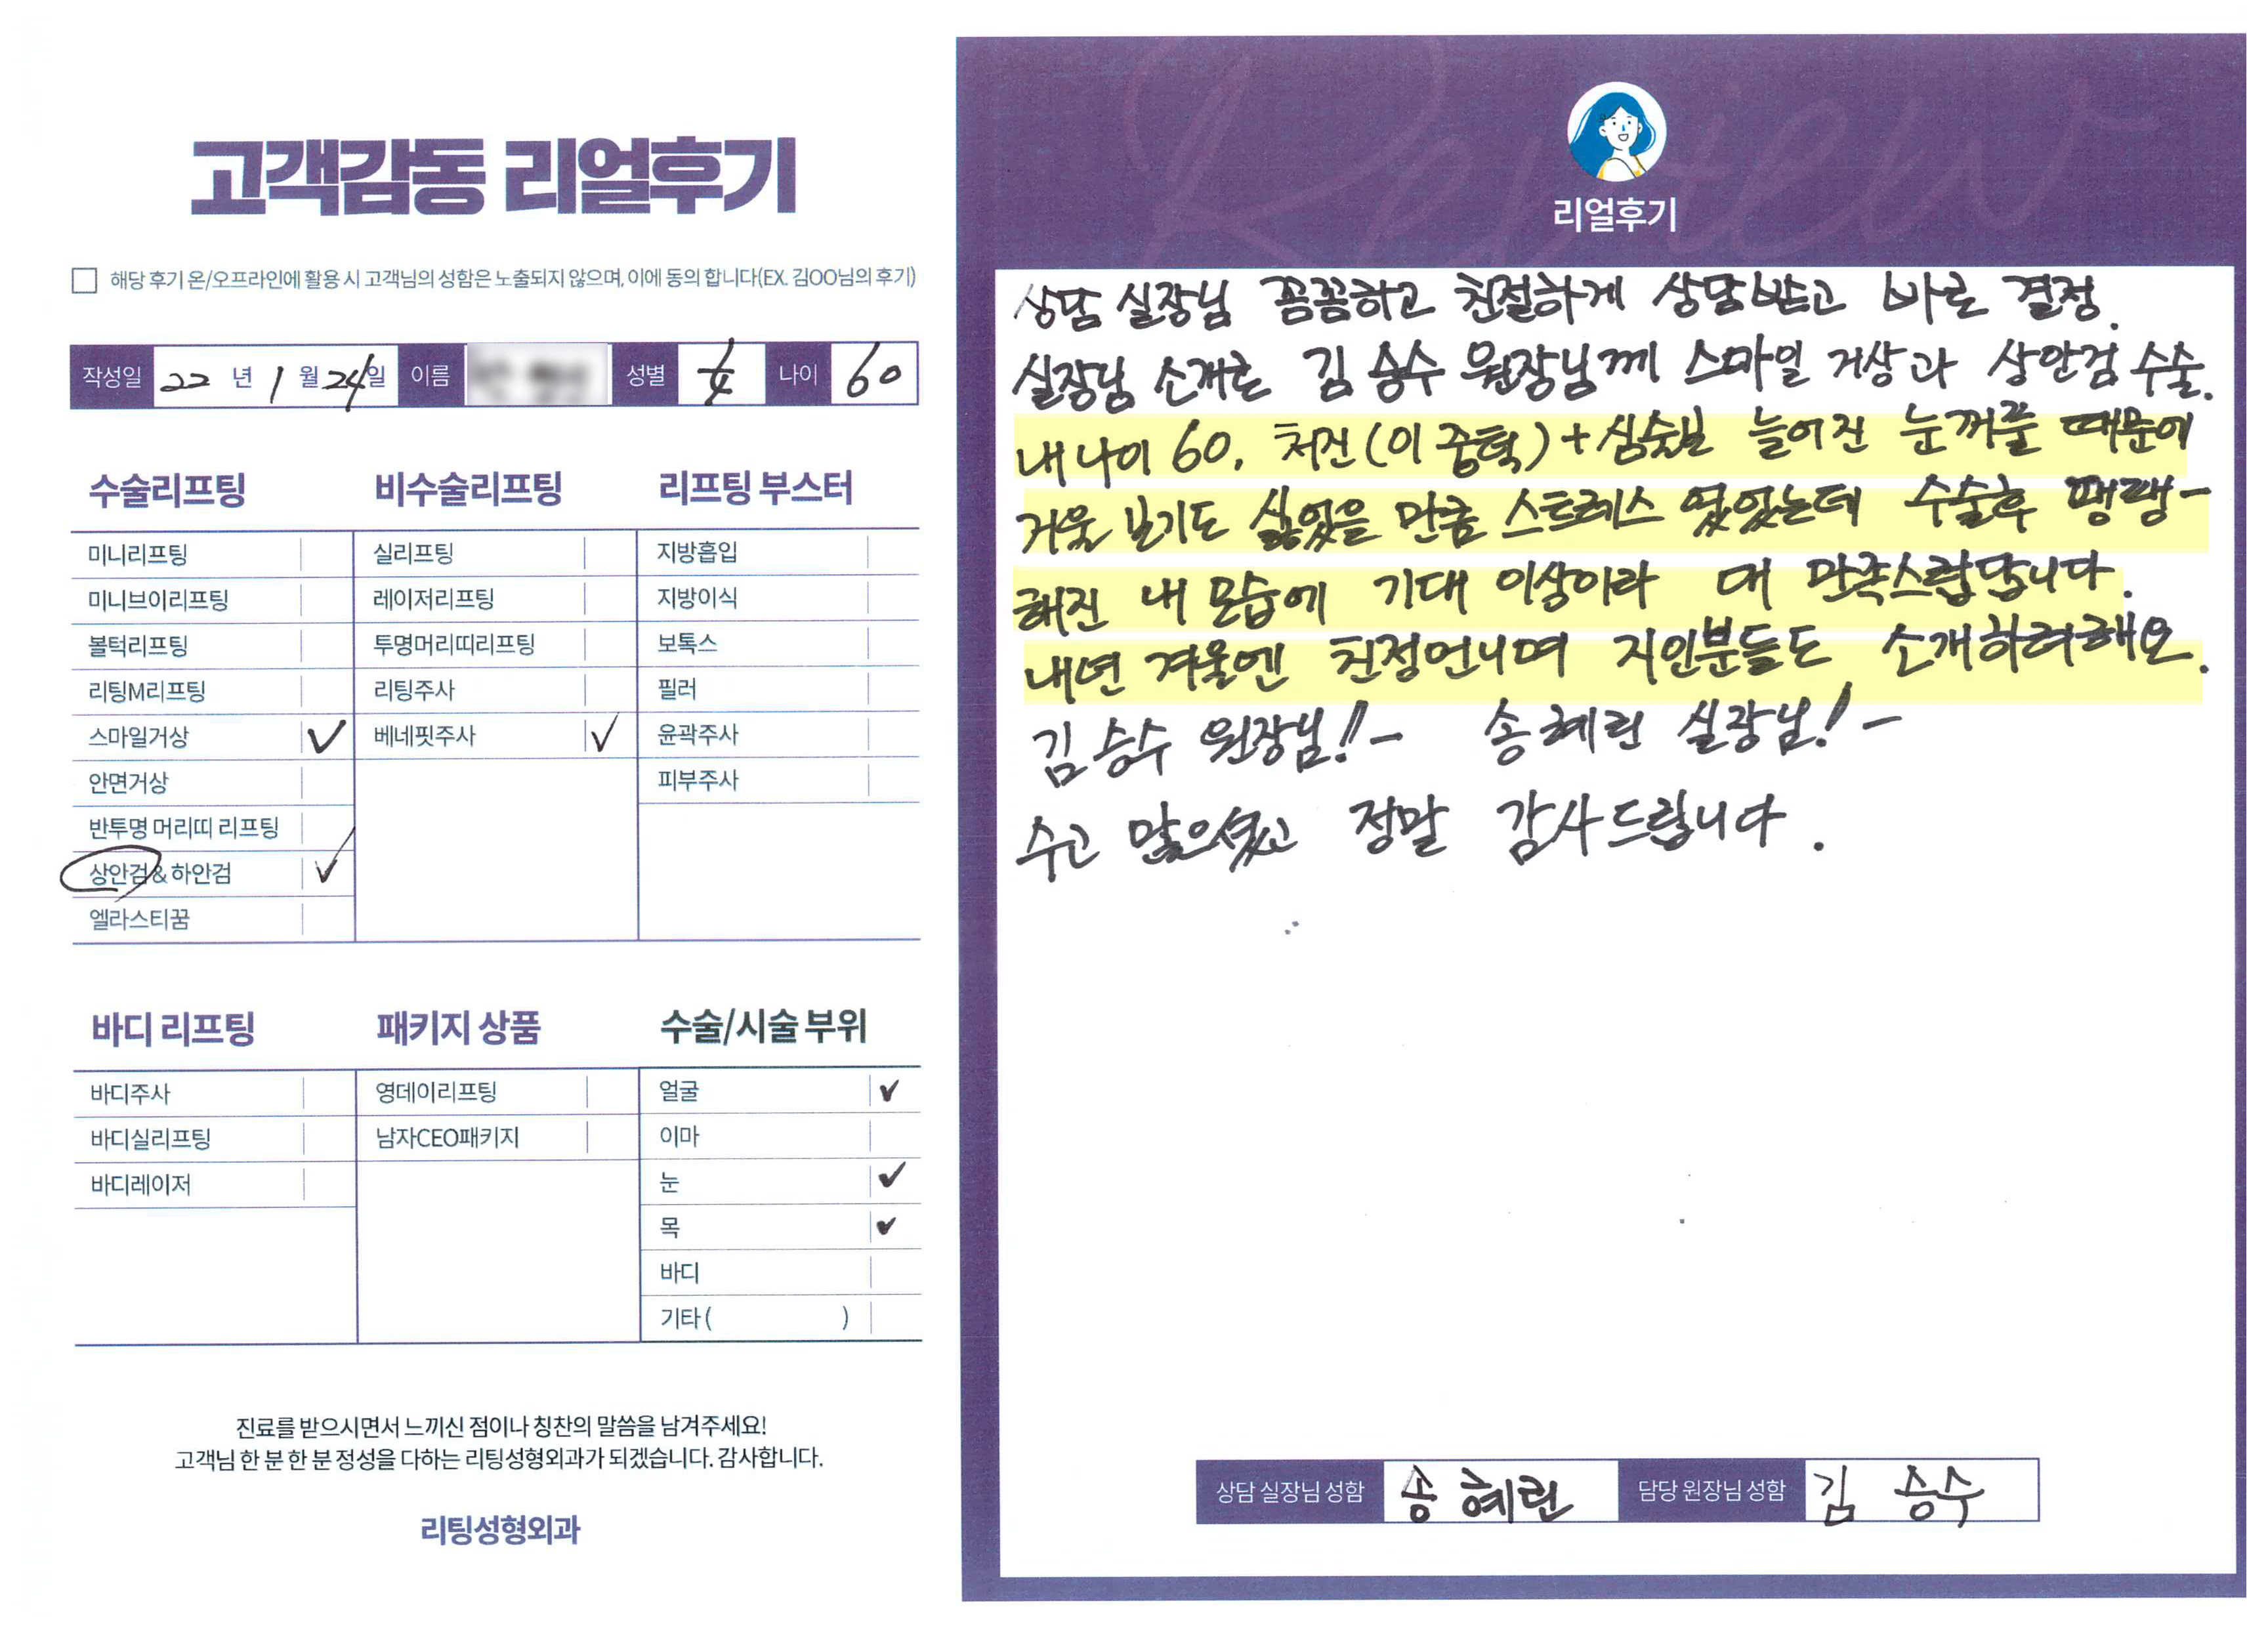 고객감동 리얼후기
해당 후기 온/오프라인에 활용 시 고객님의 성함은 노출되지 않으며, 이에 동의 합니다(EX. 김OO님의 후기)
작성일 22 년 1 월 24 일 이름 성별 나이 60
수술리프팅
미니리프팅
미니브이리프팅
볼턱리프팅
리팅M리프팅
스마일거상
안면거상
반투명 머리띠 리프팅
상안검 & 하안검
엘라스티꿈
비수술리프팅
실리프팅
레이저리프팅
투명머리띠리프팅
리팅주사
베네핏주사
리프팅 부스터
지방흡입
지방이식
보톡스
필러
윤곽주사
피부주사
바디 리프팅
바디주사
바디실리프팅
바디레이저
패키지 상품
영데이리프팅
남자CEO패키지
수술/시술 부위
얼굴
이마
눈
목
바디
기타 ( )
진료를 받으시면서 느끼신 점이나 칭찬의 말씀을 남겨주세요!
고객님 한 분 한 분 정성을 다하는 리팅성형외과가 되겠습니다. 감사합니다.
리팅성형외과
Review
리얼후기
상담 실장님 꼼꼼하고 친절하게 상담받고 바로 결정.
실장님 소개로 김승수 원장님께 스마일 거상과 상안검 수술.
내 나이 60, 처진(이중턱)+심술보 늘어진 눈꺼풀 때문에
거울 보기도 싫었을 만큼 스트레스 였었는데 수술후 땡땡-
해진 내 모습에 기대 이상이라 대 만족스럽답니다.
내년 겨울엔 친정언니며 지인분들도 소개하려해요.
김승수 원장님!!- 송혜린 실장님!-
수고 많으셨고 정말 감사드립니다.
상담 실장님 성함 송혜린 담당 원장님 성함 김승수